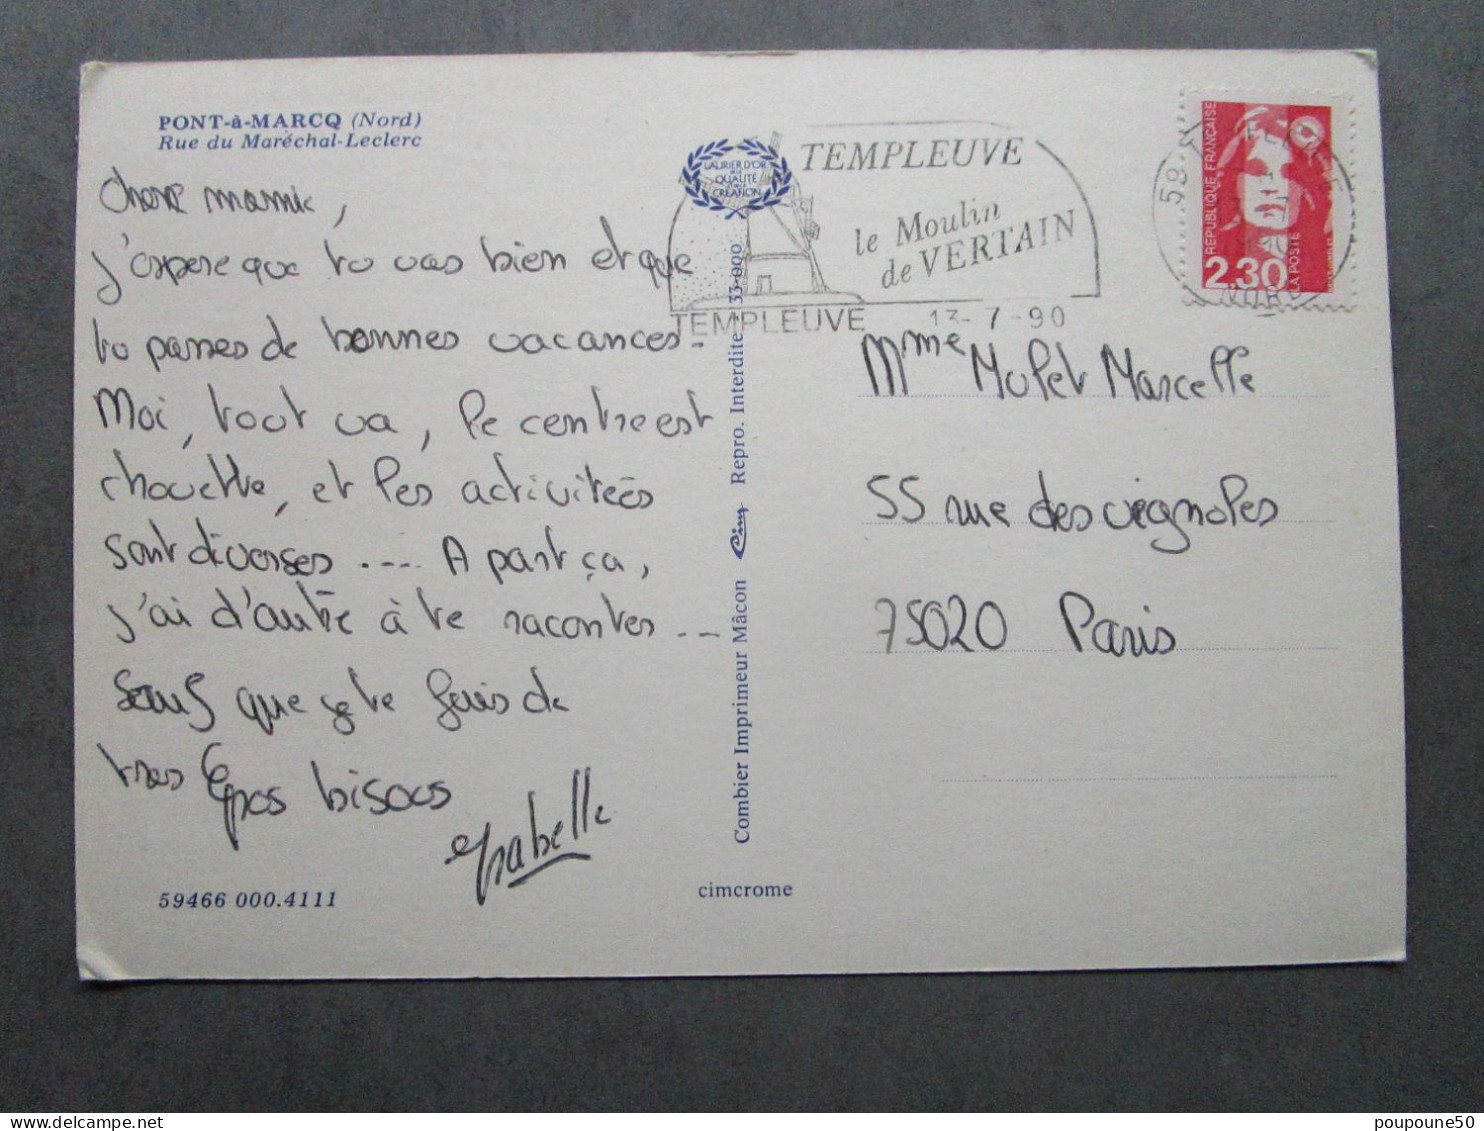 PONT-à-MARCQ (Nord)
Rue du Maréchal-Leclerc
chere mamie,
j'espere que tu vas bien et que
tu passes de bonnes vacances.
Moi, tout va, le centre est
chouette, et les activiteés
sont diverses .... A part ça,
j'ai d'autre à te raconter ...
Sauf que je te fais de
tres gros bisous
Isabelle
59466 000.4111
LAURIER D'OR
DE LA
QUALITÉ
DE LA
CRÉATION
Combier Imprimeur Mâcon Cim Repro. Interdite 33-000
cimcrome
TEMPLEUVE
le Moulin
de VERTAIN
TEMPLEUVE 13-7-90
59 TEMPLEUVE
NORD
RÉPUBLIQUE FRANÇAISE
2.30
LA POSTE
Mme Mulet Marcelle
55 rue des vignoles
75020 Paris
poupoune50